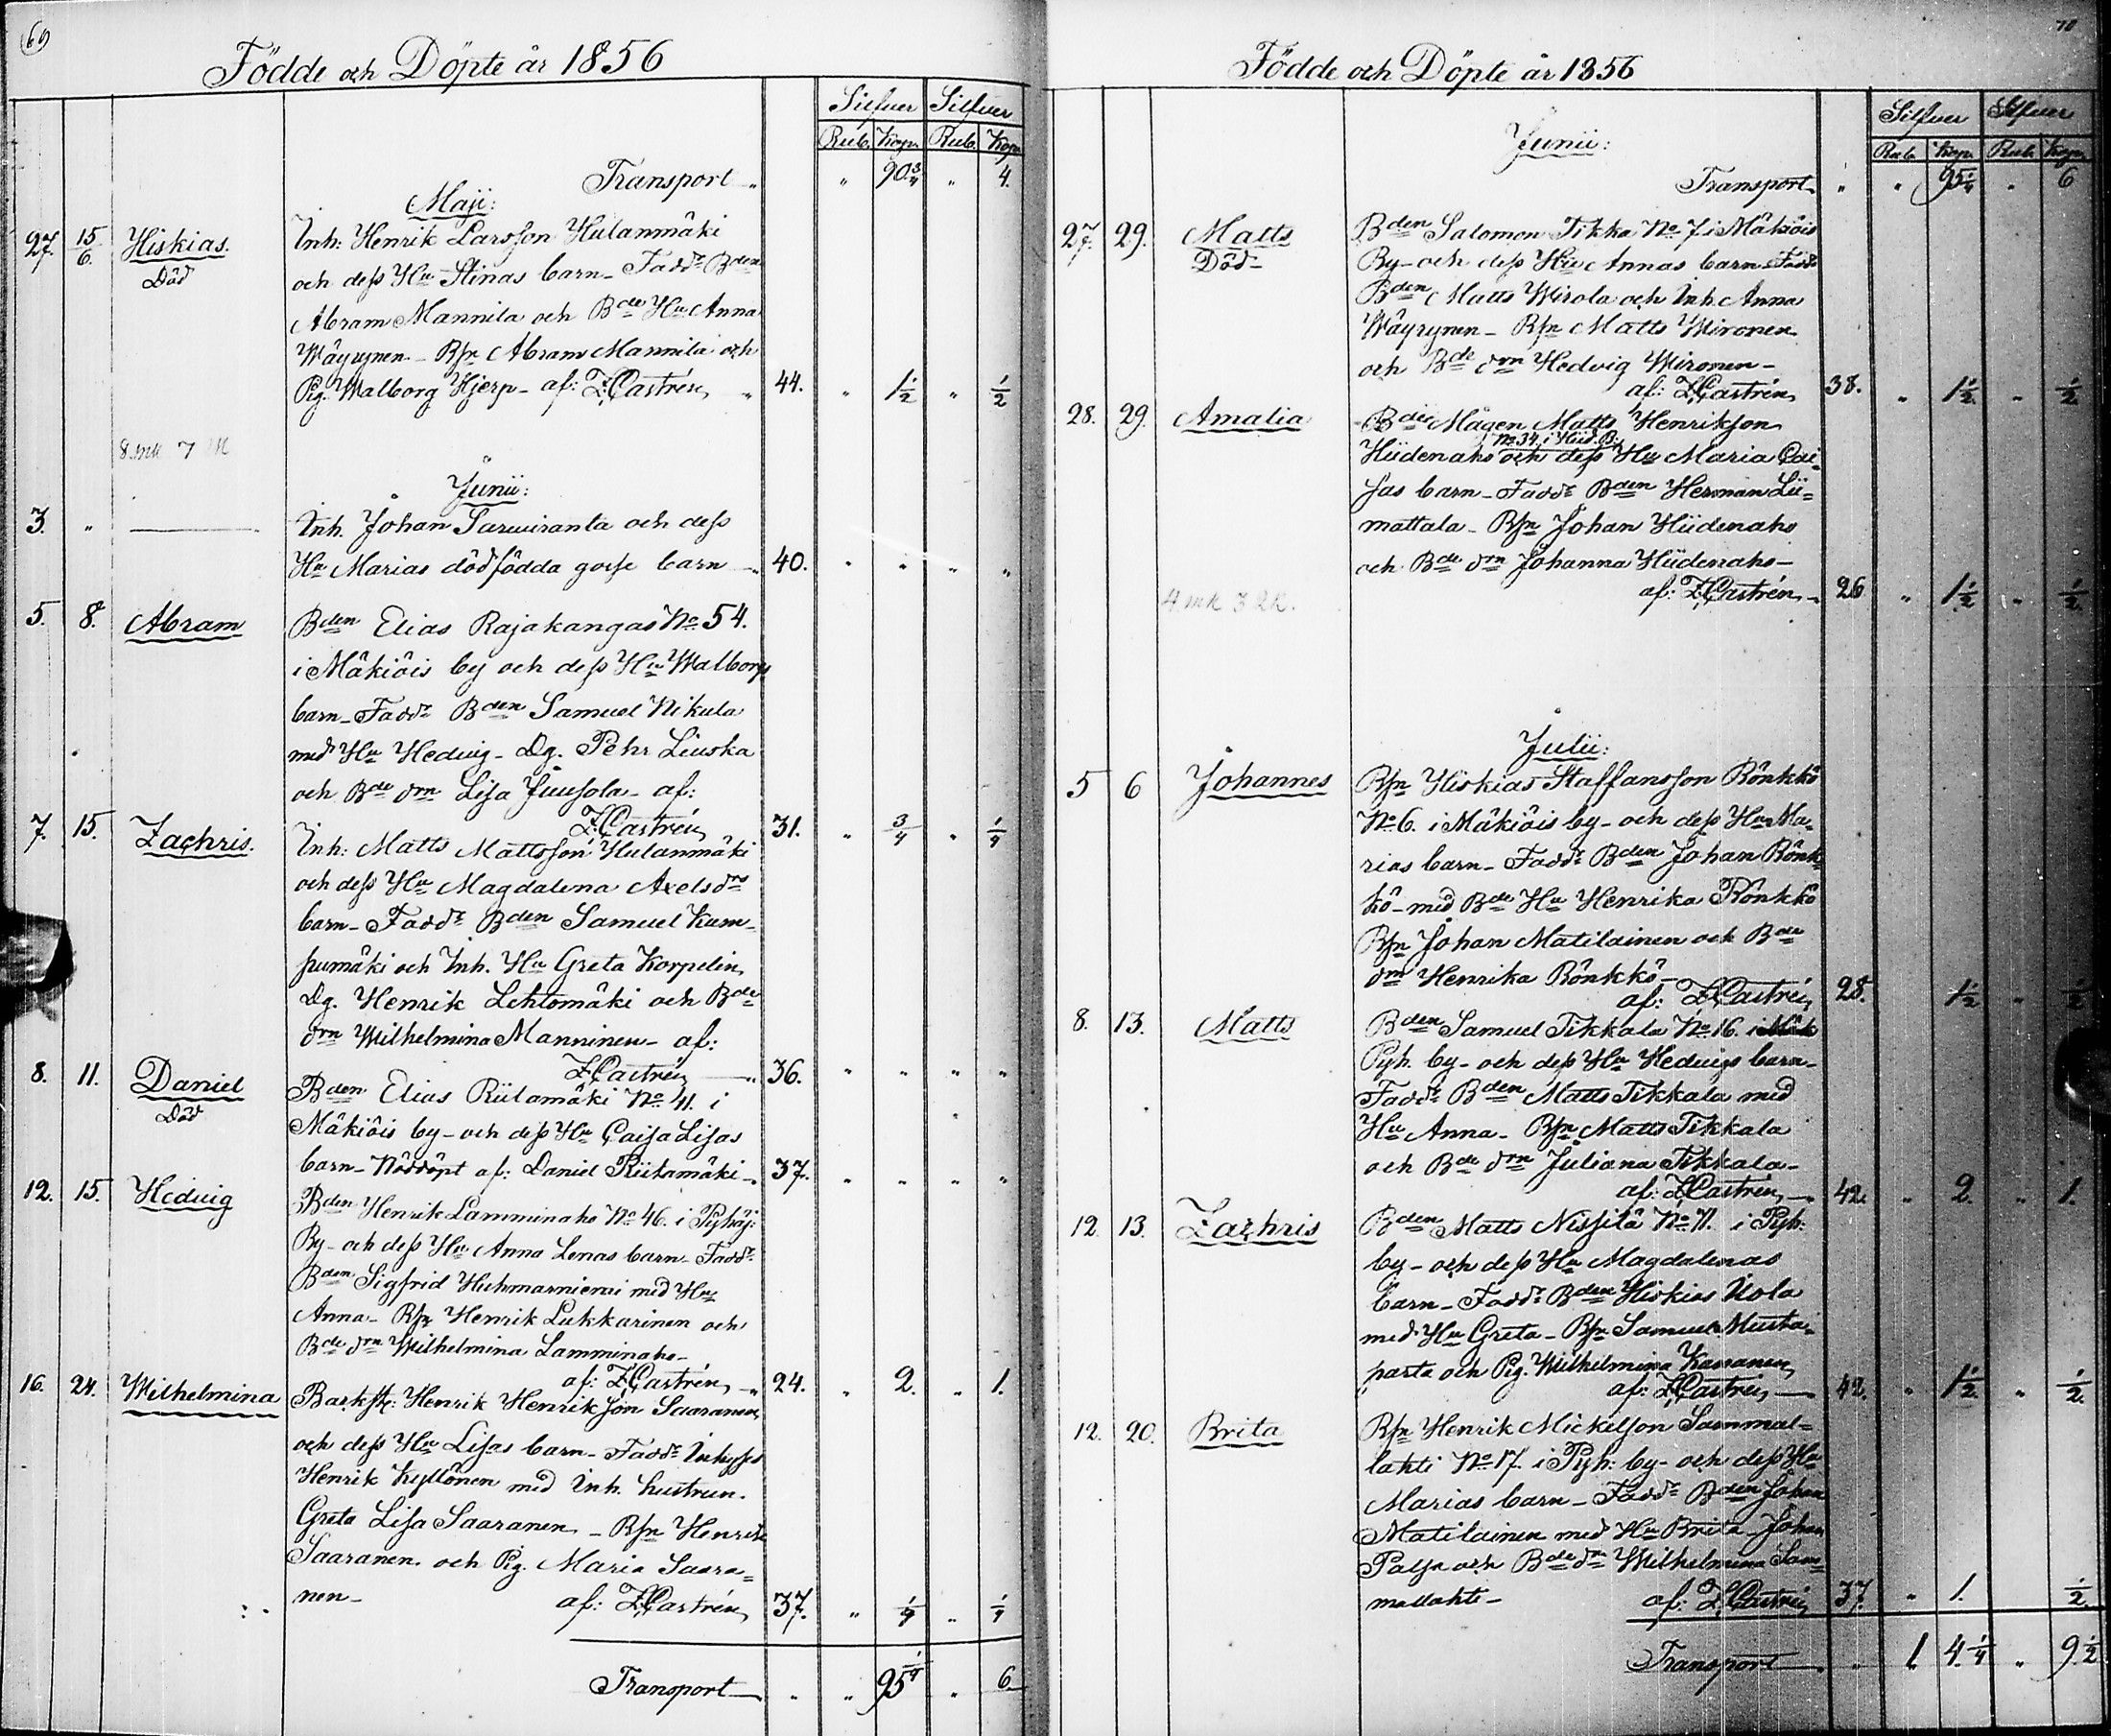 69
Födde och Döpte år 1856
Silfver Silfver
Rub. Kop. Rub. Kop.
Transport " " 90 3/4 " 4.
Maji:
27. 15/6. Hiskias. Inh: Henrik Larsson Hulanmäki
Död och dess Hu Stinas barn – Faddr Bden
Abram Mannila och Bde Hu Anna
Wäyrynen – Bsn Abram Mannila och
Pig. Walborg Hjerp – af: Z. Castrén " 44. " 1 1/2 " 1/2
8 mk 7 M
Junii:
3. " Inh. Johan Sarwiranta och dess
Hu Marias dödfödda gosse barn " 40. " " " "
5. 8. Abram Bden Elias Rajakangas No 54.
i Mäkiöis by och dess Hu Walborgs
barn – Faddr Bden Samuel Nikula
med Hu Hedvig – Dg. Pehr Liuska
och Bde drn Lisa Juusola – af:
Z. Castrén 31. " 3/4 " 1/4
7. 15. Zachris. Inh: Matts Mattsson Hulanmäki
och dess Hu Magdalena Axelsdrs
barn – Faddr Bden Samuel Kum-
pumäki och Inh. Hu Greta Korpelin,
Dg. Henrik Lehtomäki och Bde
drn Wilhelmina Manninen – af:
Z. Castrén " 36. " " " "
8. 11. Daniel Bden Elias Riitamäki No 11. i
Död Mäkiöis by – och dess Hu Caisa Lisas
barn – Nöddöpt af: Daniel Riitamäki – 37. " " " "
12. 15. Hedvig Bden Henrik Lamminaho No 46. i Pyhäj:
By – och dess Hu Anna Lenas barn – Faddr
Bden Sigfrid Huhmarniemi med Hu
Anna – Bsn Henrik Lukkarinen och
Bde drn Wilhelmina Lamminaho –
af: Z. Castrén " 24. " 2. " 1.
16. 24. Wilhelmina Backst: Henrik Henriksson Saaranen
och dess Hu Lisas barn – Faddr Inhyses
Henrik Kyllönen med Inh. hustrun
Greta Lisa Saaranen – Bsn Henrik
Saaranen och Pig. Maria Saara-
nen – af: Z. Castrén 37. " 1/4 " 1/4
Transport " " 95 1/4 " 6
70
Födde och Döpte år 1856
Silfver Silfver
Rub. Kop. Rub. Kop.
Junii:
Transport " " 95 1/4 " 6
27. 29. Matts Bden Salomon Tikka No 7. i Mäkiöis
Död – By – och dess Hu Annas barn – Faddr
Bden Matts Wirola och Inh. Anna
Wäyrynen – Bsn Matts Wironen
och Bde drn Hedvig Wironen –
af: Z. Castrén 38. " 1 1/2. " 1/2
28. 29. Amalia Bde Mågen Matts Henriksson
No 34. i Hiid. B.
Hiidenaho och dess Hu Maria Cai-
sas barn – Faddr Bden Herman Lii-
mattala – Bsn Johan Hiidenaho
och Bde drn Johanna Hiidenaho –
af: Z. Castrén " 26 " 1 1/2 " 1/2.
4 mk 3 2K.
Julii:
5 6 Johannes Bsn Hiskias Staffansson Rönkkö
No 6. i Mäkiöis by – och dess Hu Ma-
rias barn – Faddr Bden Johan Rönk-
kö – med Bde Hu Henrika Rönkkö
Bsn Johan Matilainen och Bde
drn Henrika Rönkkö –
af: Z. Castrén 28. 1 1/2 " 1/2
8. 13. Matts Bden Samuel Tikkala No 16. i
Pyh. by – och dess Hu Hedvigs barn –
Faddr Bden Matts Tikkala med
Hu Anna – Bsn Matts Tikkala
och Bde drn Juliana Tikkala –
af: Z. Castrén 42. " 2. " 1.
12. 13. Zachris Bden Matts Nissilä No 71. i Pyh:
by – och dess Hu Magdalenas
barn – Faddr Bden Hiskias Uola
med Hu Greta – Bsn Samuel Musta-
parta och Pig. Wilhelmina Kananen
af: Z. Castrén 42. " 1 1/2 " 1/2.
12. 20. Brita Bsn Henrik Mickelson Sammal-
lahti No 17. i Pyh: by – och dess Hu
Marias barn – Faddr Bden Johan
Matilainen med Hu Brita – Johan
och Bde drn Wilhelmina Sam-
mallahti – af: Z. Castrén 37. " 1. 1/2.
Transport " 1. 4 1/4 " 9 1/2